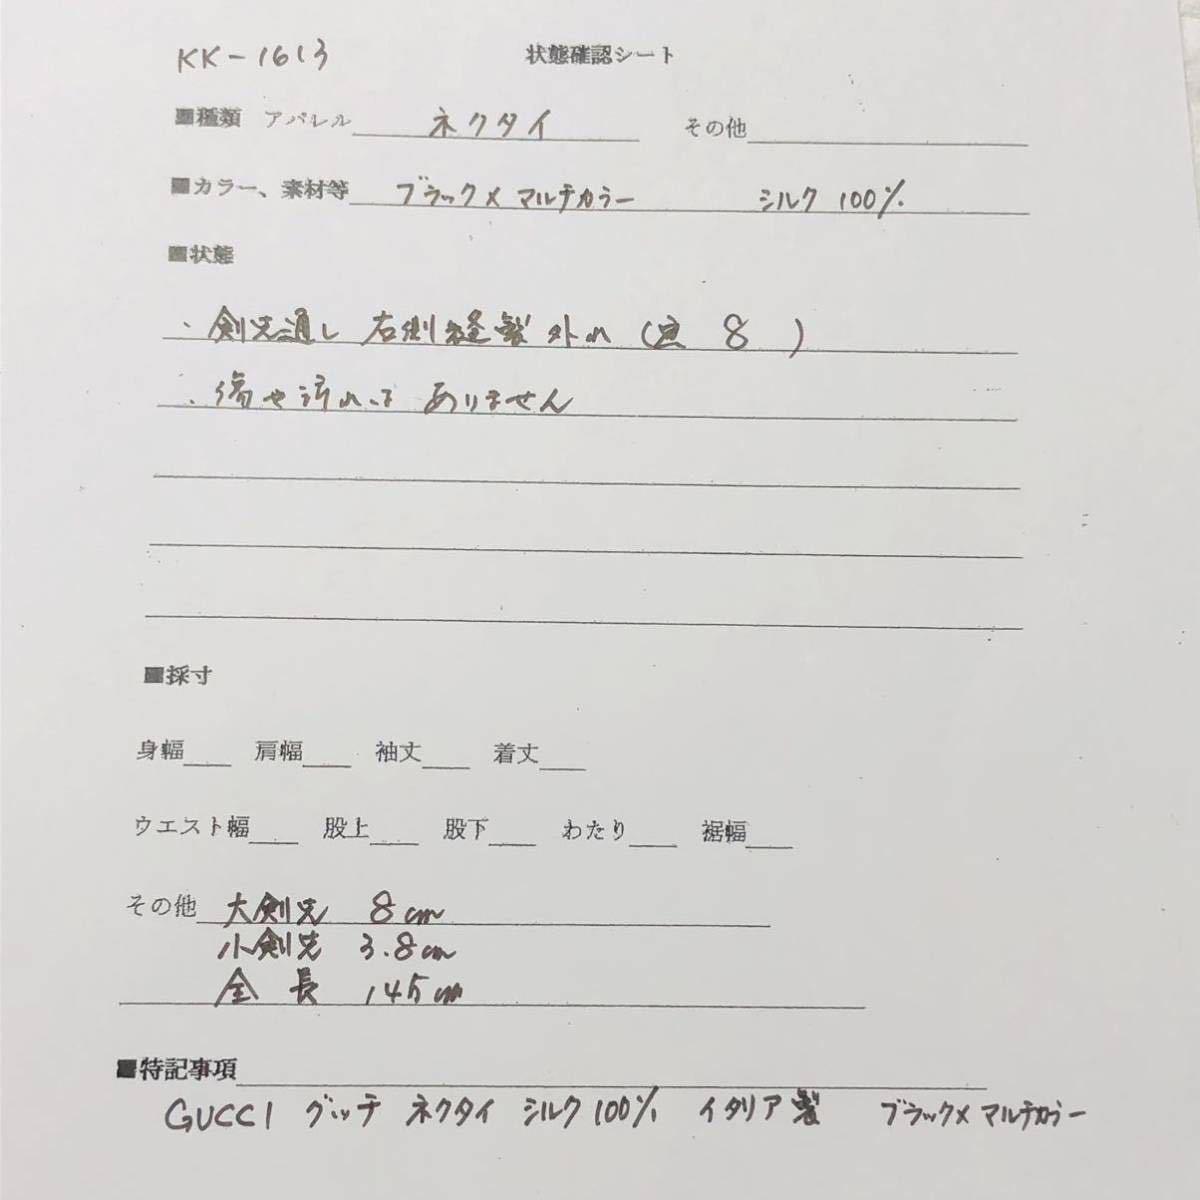 KK-1613 状態確認シート
■種類 アパレル ネクタイ その他
■カラー、素材等 ブラック×マルチカラー シルク 100%
■状態
・剣先通し 右側縫製外れ ( 8 )
・傷や汚れは ありません
■採寸
身幅 肩幅 袖丈 着丈
ウエスト幅 股上 股下 わたり 裾幅
その他 大剣先 8cm
小剣先 3.8cm
全長 145cm
■特記事項
GUCCI グッチ ネクタイ シルク100% イタリア製 ブラック×マルチカラー